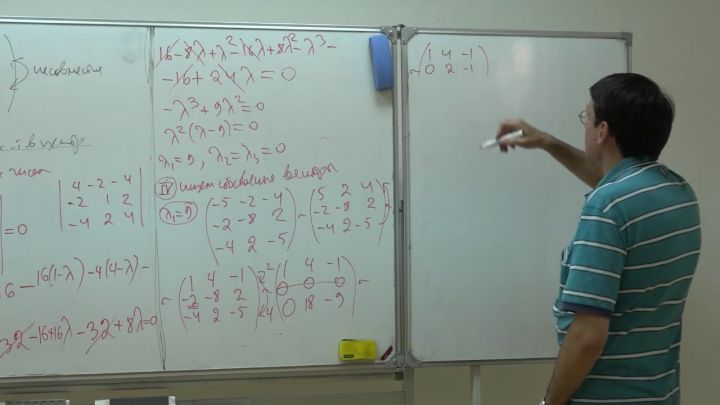 несовместн
= 0
| 4 -2 -4 |
| -2 1 2 |
| -4 2 4 |
-16(1-λ)-4(4-λ)-
32-16+16λ-32+8λ=0
16-8λ+λ²-16λ+8λ²-λ³-
-16+24λ=0
-λ³+9λ²=0
λ²(λ-9)=0
λ₁=9, λ₂=λ₃=0
IV ищем собственные векторы
λ₁=9
(-5 -2 -4) ~ (5 2 4)
(-2 -8 2) (-2 -8 2)
(-4 2 -5) (-4 2 -5)
~ (1 4 -1) (1 4 -1) ~
(-2 -8 2) (0 0 0)
(-4 2 -5) (0 18 -9)
~ (1 4 -1)
(0 2 -1)